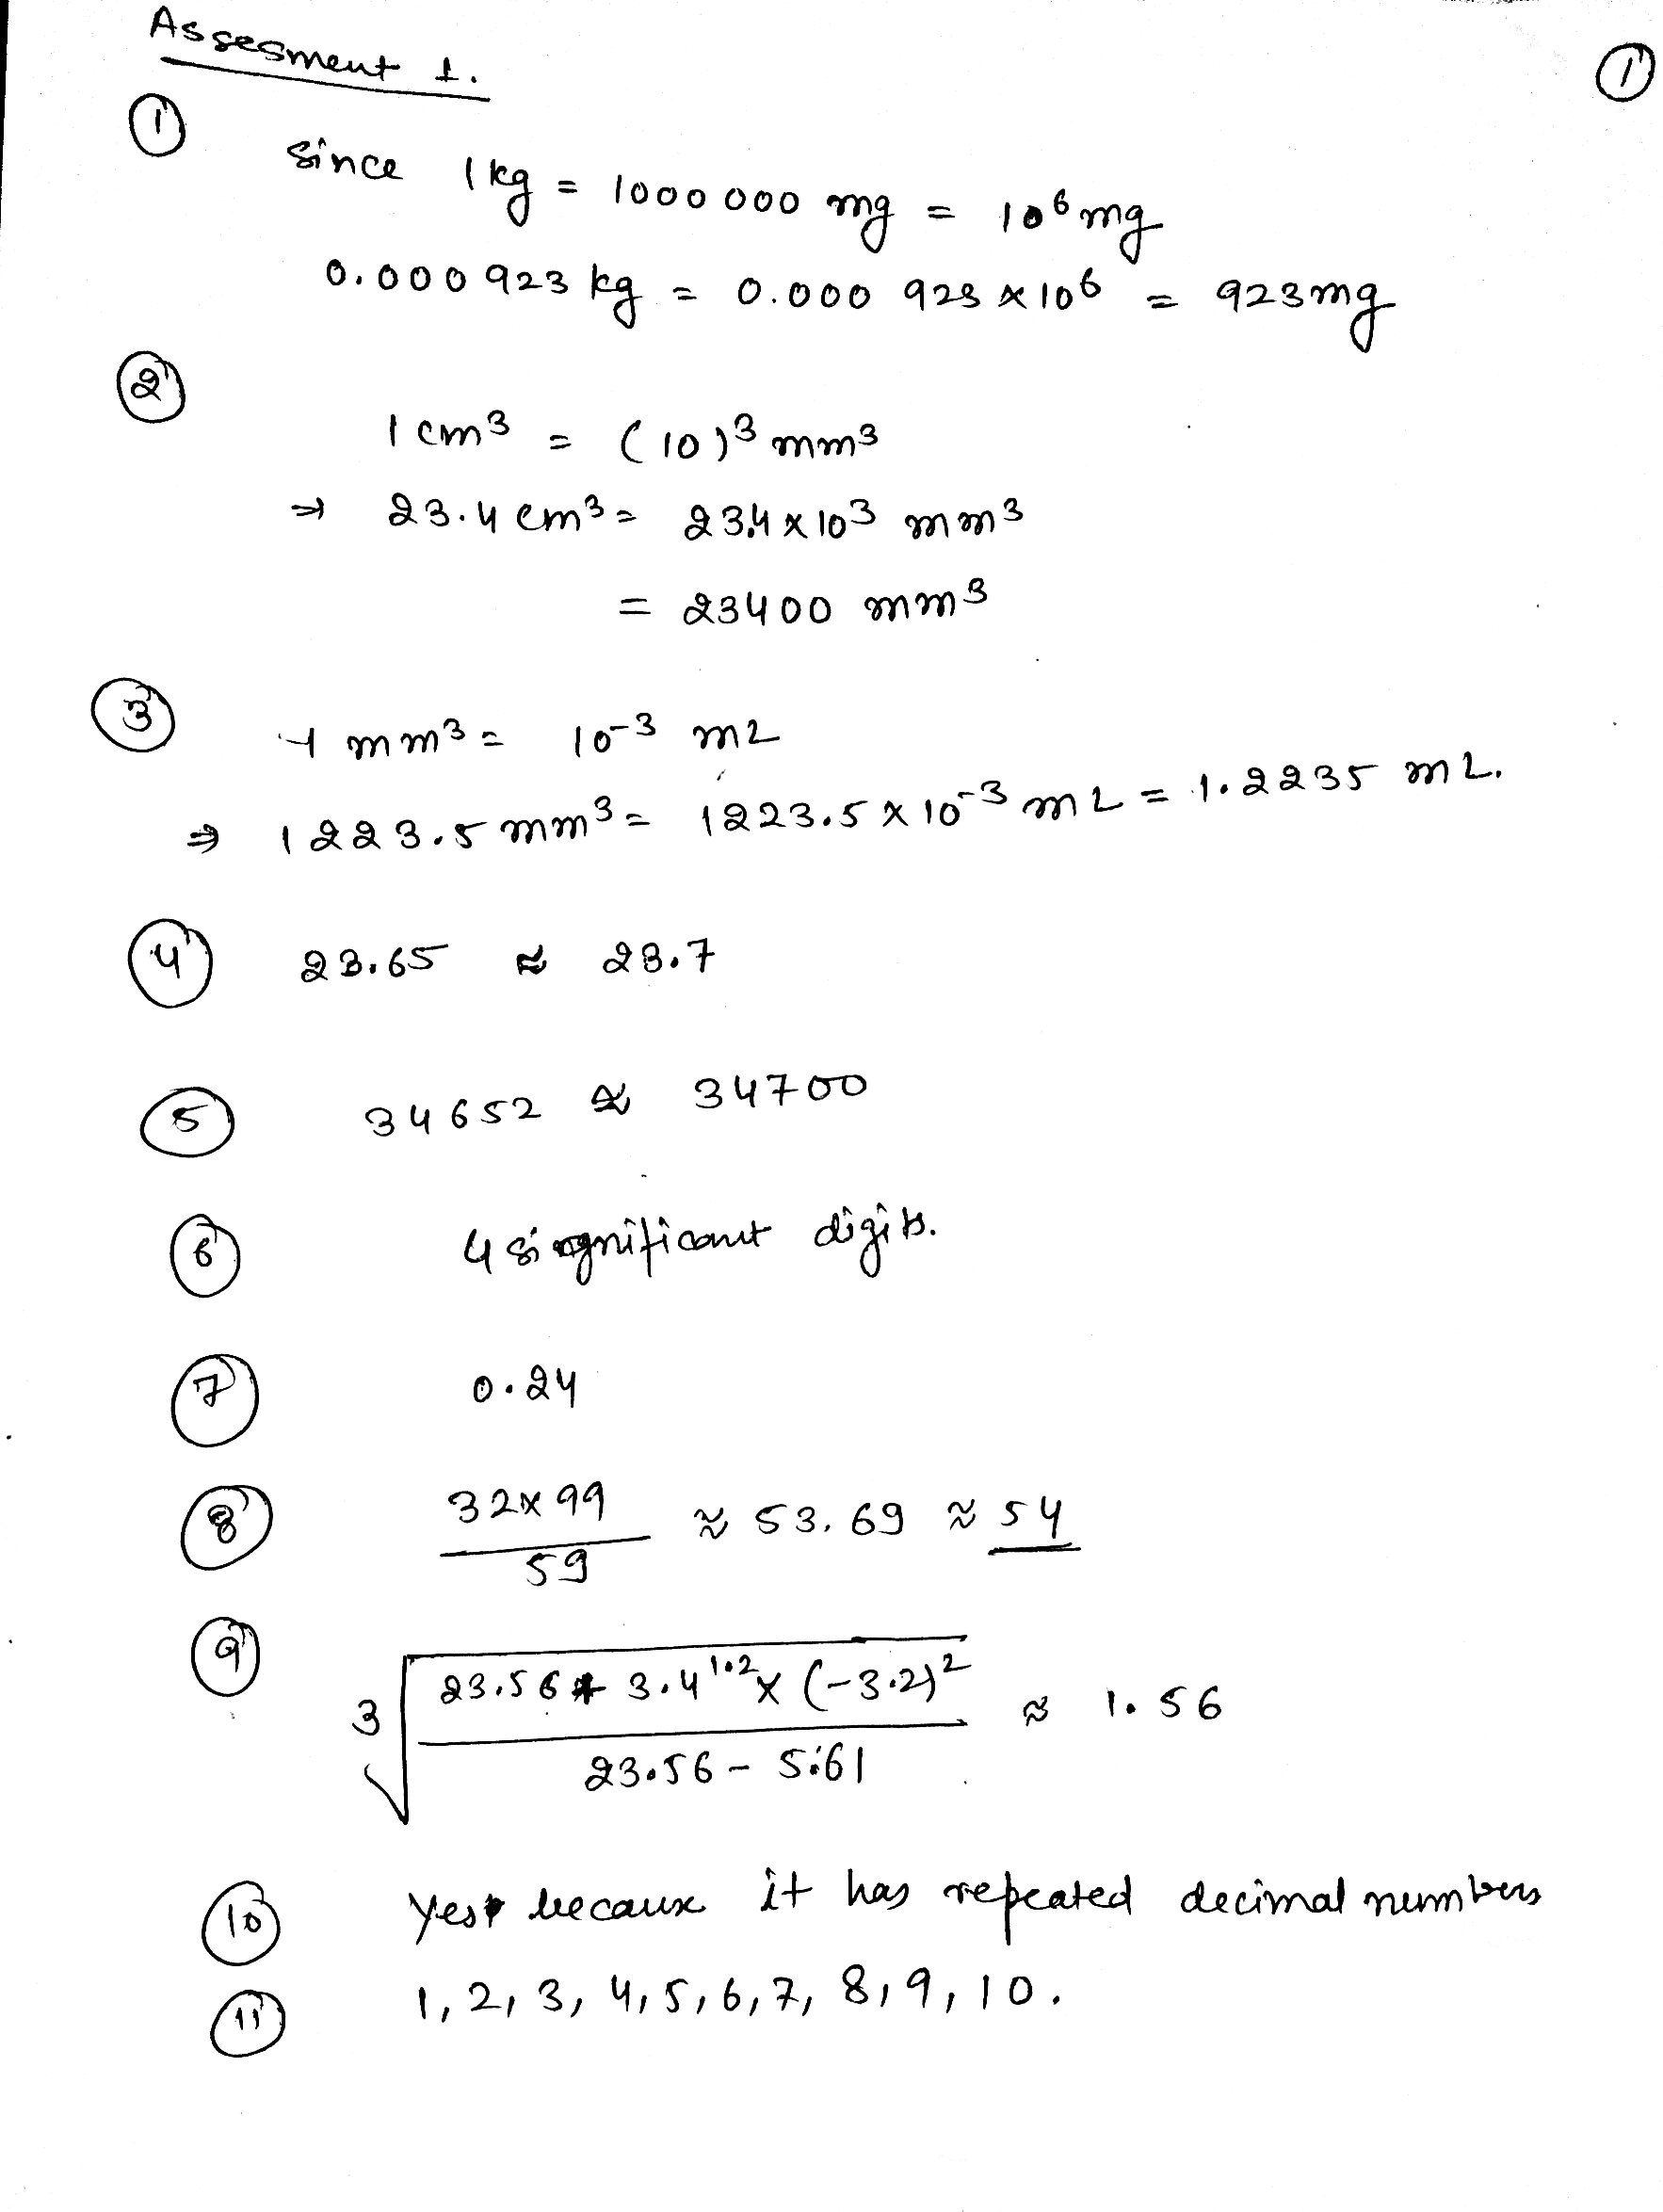 Assesment 1.
①
① since 1 kg = 1000 000 mg = 10⁶ mg
0.000 923 kg = 0.000 923 x 10⁶ = 923 mg
② 1 cm³ = (10)³ mm³
⇒ 23.4 cm³ = 23.4 x 10³ mm³
= 23400 mm³
③ 1 mm³ = 10⁻³ mL
⇒ 1223.5 mm³ = 1223.5 x 10⁻³ mL = 1.2235 mL.
④ 23.65 ≈ 23.7
⑤ 34652 ≈ 34700
⑥ 4 significant digits.
⑦ 0.24
⑧ 32x99/59 ≈ 53.69 ≈ 54
⑨ ∛((23.56 + 3.4^1.2 x (-3.2)²)/(23.56 - 5.61)) ≈ 1.56
⑩ Yes because it has repeated decimal numbers
⑪ 1, 2, 3, 4, 5, 6, 7, 8, 9, 10.